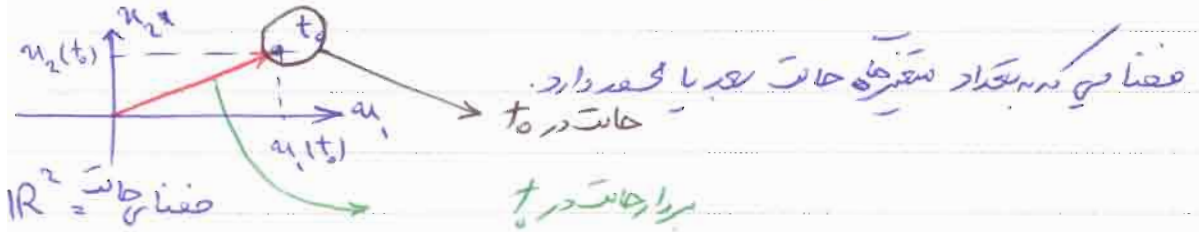 x₂
x₂(t₀)
t₀
فضایی که به تعداد متغیرهای حالت بعد یا محور دارد.
x₁
حالت در t₀
x₁(t₀)
فضای حالت = ℝ²
بردار حالت در t₀